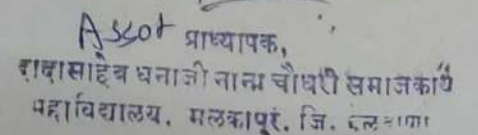 Assot प्राध्यापक,
दादासाहेब धनाजी नाना चौधरी समाजकार्य
महाविद्यालय. मलकापूर. जि.